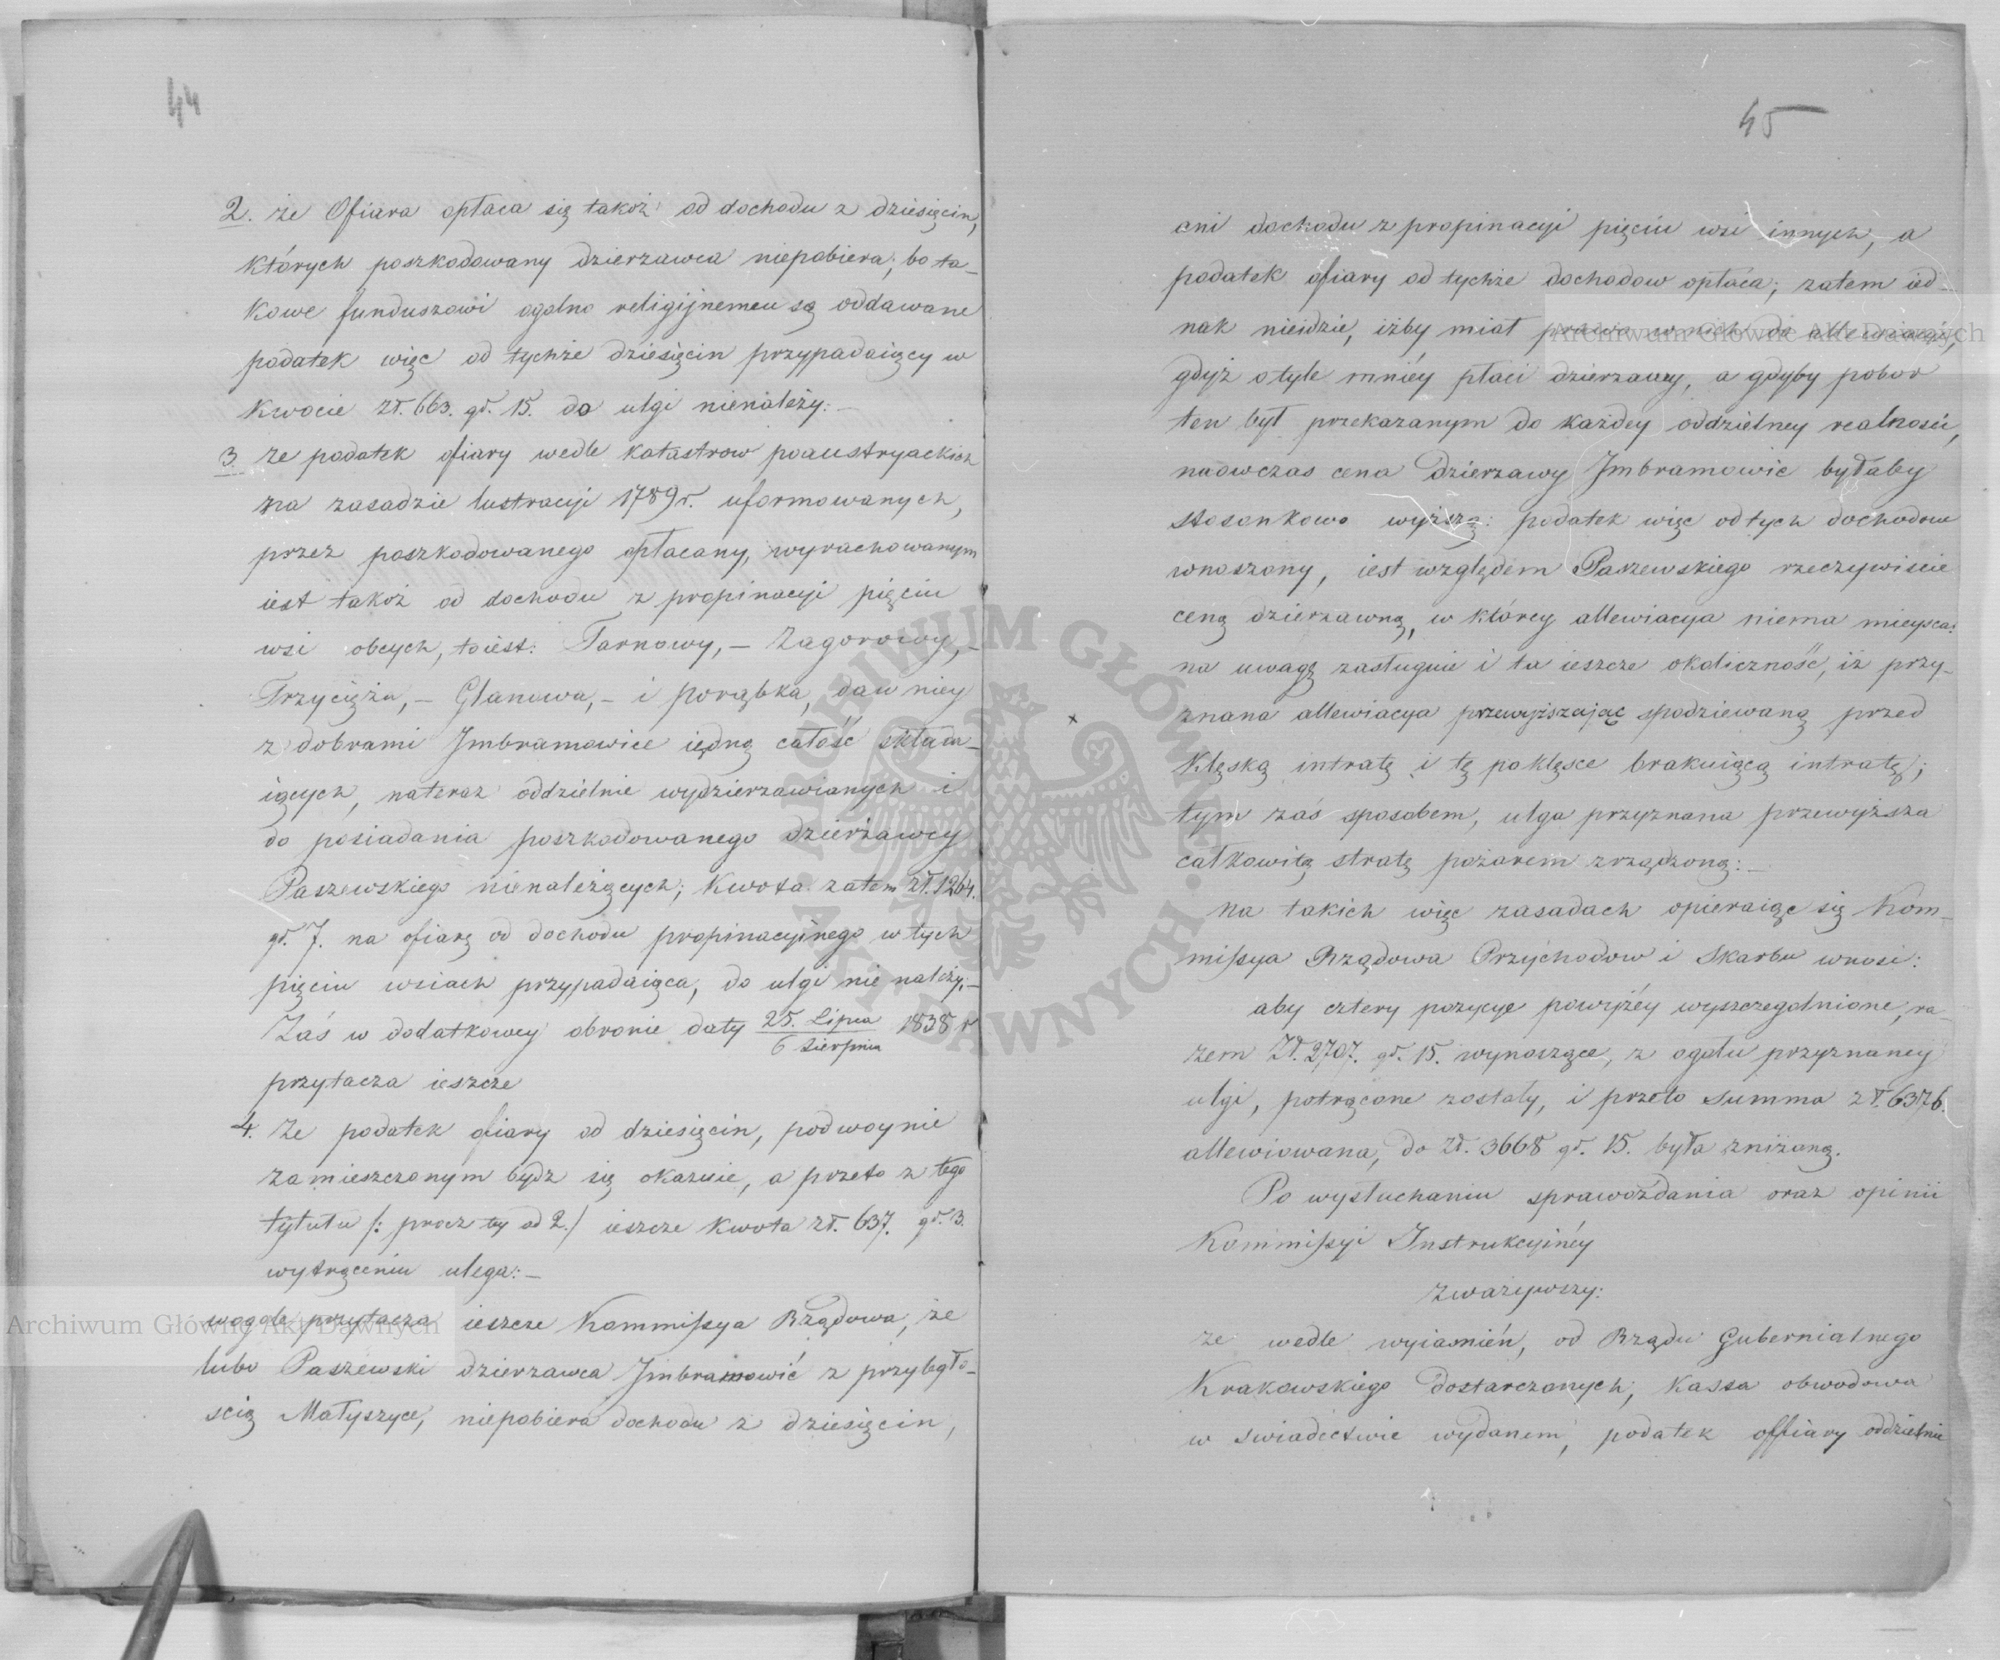 44
2. że Ofiara opłaca się takoż od dochodu z dziesięcin,
których poszkodowany dzierzawca niepobiera, bo ta-
kowe funduszowi ogolno religijnemu są oddawane
podatek więc od tychże dziesięcin przypadaiący w
kwocie zł. 663. gr. 15. do ulgi nienależy: —
3. że podatek ofiary wedle katastrow poaustryackich
na zasadzie lustracyi 1789 r. uformowanych,
przez poszkodowanego opłacany, wyrachowanym
iest takoż od dochodu z propinacyi pięciu
wsi obcych, toiest: Tarnowy, — Zagorowy, —
Trzyciąża, — Glanowa, — i porąbka, dawniey
z dobrami Imbramowice iedną całość składa-
iących, nateraz oddzielnie wydzierzawianych i
do posiadania poszkodowanego dzierżawcy
Paszewskiego nienależących; kwota zatem zł. 1264.
gr. 7. na ofiarę od dochodu propinacyinego w tych
pięciu wsiach przypadaiąca, do ulgi nie należy; —
Zaś w dodatkowey obronie daty 25. Lipca / 6 Sierpnia 1838 r
przytacza ieszcze
4. Że podatek ofiary od dziesięcin, podwoynie
zamieszczonym bydz się okazuie, a przeto z tego
tytułu /: procz ty od 2./ ieszcze kwota zł. 637. gr. 13.
wytrąceniu ulega: —
wogole przytacza ieszcze Kommissya Rządowa, że
lubo Paszewski dzierzawca Imbramowić z przyległo-
scią Małyszyce, niepobiera dochodu z dziesięcin,
45
ani dochodu z propinacyi pięciu wsi innych, a
podatek ofiary od tychże dochodow opłaca; zatem ied-
nak nieidzie, iżby miał prawo w nich do allewiacyi,
gdyż otyle mniéy płaci dzierzawy, a gdyby pobor
ten był przekazanym do każdey oddzielney realności,
naowczas cena dzierzawy Imbramowic byłaby
stosonkowo wyższą: podatek więc od tych dochodow
wnoszony, iest względem Paszewskiego rzeczywiscie
ceną dzierzawną, w którcy allewiacya niema mieysca:
na uwagę zasługuie i ta ieszcze okoliczność, iż przy-
znana allewiacya przewyższając spodziewaną przed
klęską intratę i tę poklęsce brakuiącą intratę;
tym zaś sposobem, ulga przyznana przewyższa
całkowitą stratę pożarem zrządzoną: —
Na takich więc zasadach opieraiąc się Kom-
missya Rządowa Przychodow i Skarbu wnosi:
aby cztery pozycye powyźéy wyszczegolnione, ra-
zem Zł. 2707. gr. 15. wynoszące, z ogołu przyznaney
ulgi, potrącone zostały, i przeto Summa zł. 6376.
allewiowana, do zł. 3668 gr. 15. była zniżoną.
Po wysłuchaniu sprawozdania oraz opinii
Kommissyi Instrukcyinéy
zważywszy:
ze wedle wyiasnień, od Rządu Gubernialnego
Krakowskiego dostarczonych, kassa obwodowa
w swiadectwie wydanem, podatek offiary oddzielnie
Archiwum Główne Akt Dawnych
Archiwum Główne Akt Dawnych
ARCHIWUM GŁÓWNE AKT DAWNYCH